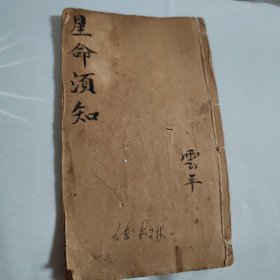 星命須知
雲平